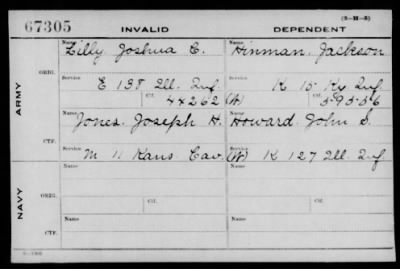 67305 INVALID DEPENDENT (3-111-3)
Name Name
Lilly Joshua C. Hinman. Jackson
ORIG. Service Service
E 138 Ill. Inf. K 15 Ky Inf.
Ctf. 44262 (W) Ctf. 59556
ARMY
Name Name
Jones. Joseph H. Howard. John S.
CTF. Service Service
M 11 Kans Cav. (W) K 127 Ill. Inf.
Name Name
ORIG. Service Service
Ctf. Ctf.
NAVY
Name Name
CTF. Service Service